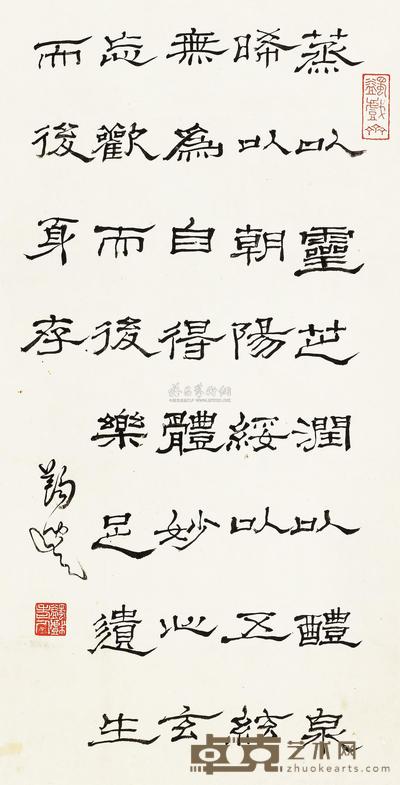 蒸以靈芝潤以醴泉
晞以朝陽綏以五絃
無為自得體妙心玄
忘歡而後樂足遺生
而後身存
卓克艺术网
zhuokearts.com